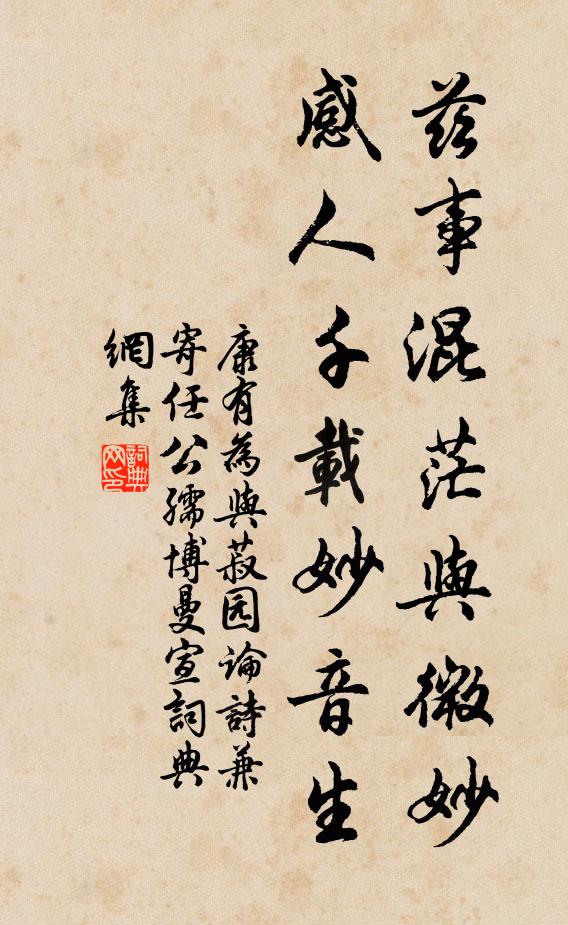 茲事混茫與微妙
感人千載妙音生
康有為與菽园論詩兼
寄任公孺博曼宣詞典
網集
詞典
网印